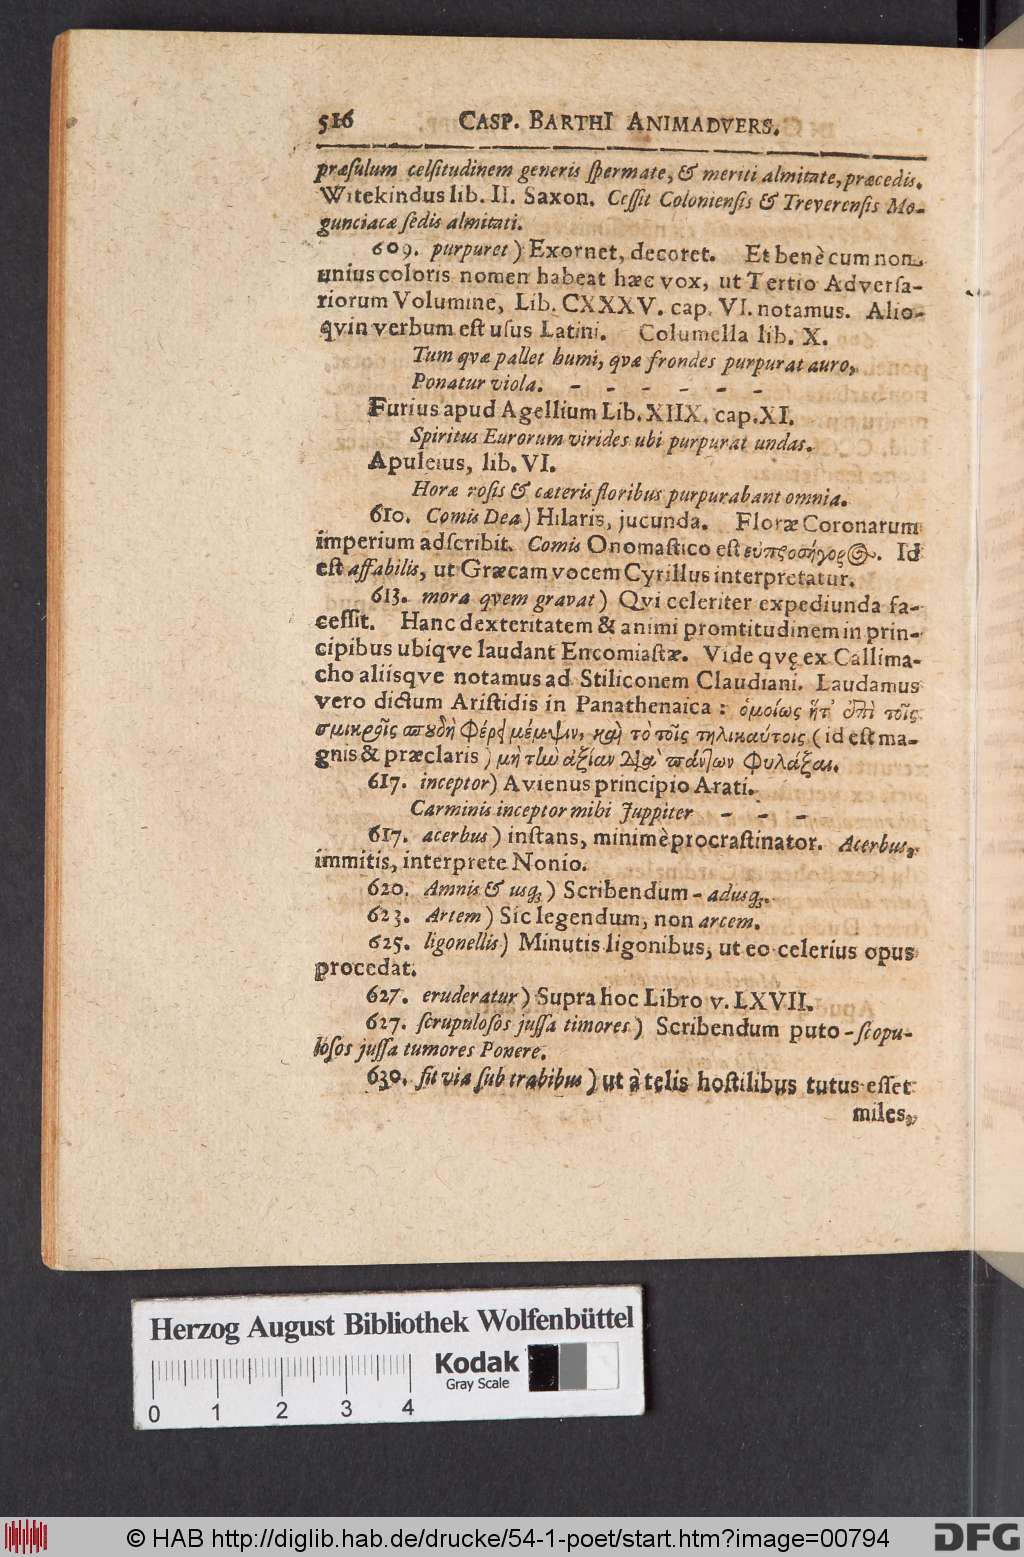 516 CASP. BARTHI ANIMADVERS.
præsulum celsitudinem generis spermate, & meriti almitate, præcedis.
Witekindus lib. II. Saxon. Cessit Coloniensis & Treverensis Mo-
gunciacæ sedis almitati.
609. purpuret) Exornet, decoret. Et benè cum non
unius coloris nomen habeat hæc vox, ut Tertio Adversa-
riorum Volumine, Lib. CXXXV. cap. VI. notamus. Alio-
qvin verbum est usus Latini. Columella lib. X.
Tum qvæ pallet humi, qvæ frondes purpurat auro,
Ponatur viola. - - - - - -
Furius apud Agellium Lib. XIIX. cap. XI.
Spiritus Eurorum virides ubi purpurat undas.
Apuleius, lib. VI.
Horæ rosis & cæteris floribus purpurabant omnia.
610. Comis Dea) Hilaris, jucunda. Floræ Coronarum
imperium adscribit. Comis Onomastico est εὐπροσήγορος. Id
est affabilis, ut Græcam vocem Cyrillus interpretatur.
613. mora qvem gravat) Qvi celeriter expediunda fa-
cessit. Hanc dexteritatem & animi promtitudinem in prin-
cipibus ubiqve laudant Encomiastæ. Vide qvę ex Callima-
cho aliisqve notamus ad Stiliconem Claudiani. Laudamus
vero dictum Aristidis in Panathenaica: ὁμοίως ἥτ' ἐπὶ τοῖς
σμικροῖς σπουδὴ φέρει μέμψιν, καὶ τὸ τοῖς τηλικαύτοις (id est ma-
gnis & præclaris) μὴ τὴν ἀξίαν διὰ πάντων φυλάξαι.
617. inceptor) Avienus principio Arati.
Carminis inceptor mihi Juppiter - - -
617. acerbus) instans, minimè procrastinator. Acerbus,
immitis, interprete Nonio.
620. Amnis & usq;) Scribendum - adusq;.
623. Artem) Sic legendum, non arcem.
625. ligonellis) Minutis ligonibus, ut eo celerius opus
procedat.
627. eruderatur) Supra hoc Libro v. LXVII.
627. scrupulosos jussa timores) Scribendum puto - scopu-
losos jussa tumores Ponere.
630. sit via sub trabibus) ut à telis hostilibus tutus esset
miles,
Herzog August Bibliothek Wolfenbüttel
Kodak
Gray Scale
0 1 2 3 4
© HAB http://diglib.hab.de/drucke/54-1-poet/start.htm?image=00794
DFG